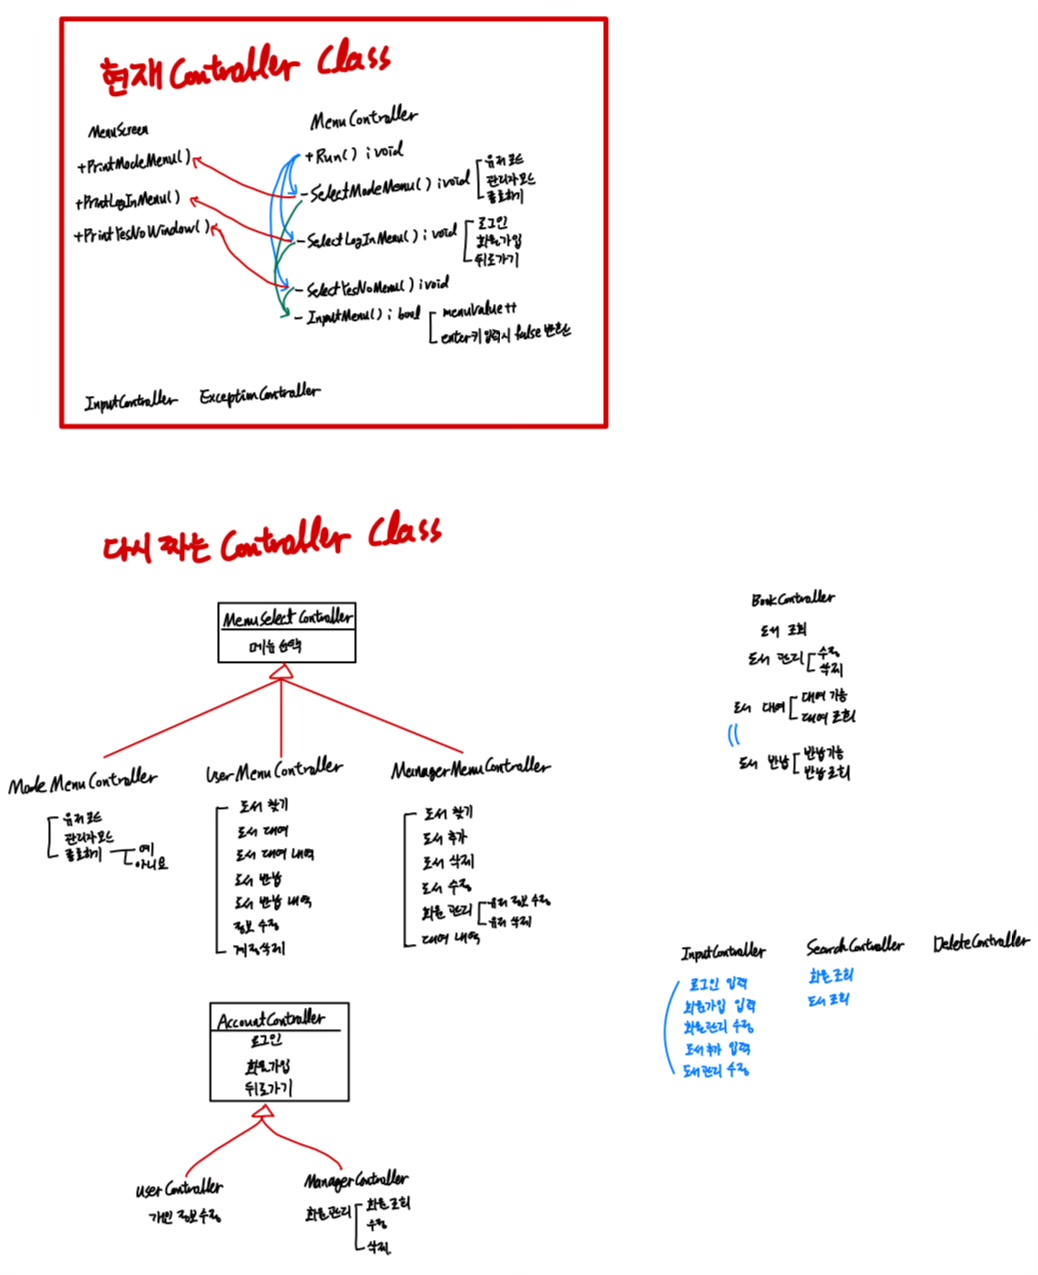 현재 Controller Class
MenuScreen
+PrintModeMenu()
+PrintLogInMenu()
+PrintYesNoWindow()
MenuController
+Run() : void
-SelectModeMenu() : void
유저모드
관리자모드
종료하기
-SelectLogInMenu() : void
로그인
회원가입
뒤로가기
-SelectYesNoMenu() : void
-InputMenu() : bool
menuValue++
enter키 입력시 false 반환
InputController ExceptionController
다시 짜는 Controller Class
MenuSelectController
메뉴선택
ModeMenuController
유저모드
관리자모드
종료하기
예
아니요
UserMenuController
도서 찾기
도서 대여
도서 대여 내역
도서 반납
도서 반납 내역
정보 수정
계정삭제
ManagerMenuController
도서 찾기
도서 추가
도서 삭제
도서 수정
회원 관리
유저 정보 수정
유저 삭제
대여 내역
AccountController
로그인
회원가입
뒤로가기
UserController
개인 정보수정
ManagerController
회원관리
회원조회
수정
삭제
BookController
도서 조회
도서 관리
수정
삭제
도서 대여
대여 기능
대여 조회
도서 반납
반납기능
반납조회
InputController
로그인 입력
회원가입 입력
회원관리 수정
도서추가 입력
도서관리 수정
SearchController
회원조회
도서조회
DeleteController